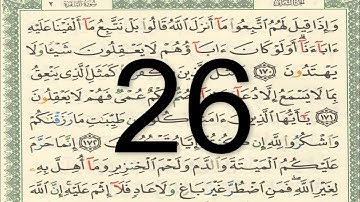 سُورَةُ الْبَقَرَةِ ٢
وَإِذَا قِيلَ لَهُمُ ٱتَّبِعُوا۟ مَآ أَنزَلَ ٱللَّهُ قَالُوا۟ بَلْ نَتَّبِعُ مَآ أَلْفَيْنَا عَلَيْهِ
ءَابَآءَنَآ أَوَلَوْ كَانَ ءَابَآؤُهُمْ لَا يَعْقِلُونَ شَيْـًٔا وَلَا
يَهْتَدُونَ ١٧٠ كَفَرُوا۟ كَمَثَلِ ٱلَّذِى يَنْعِقُ
بِمَا لَا يَسْمَعُ إِلَّا دُعَآءً عُمْىٌ فَهُمْ لَا يَعْقِلُونَ
١٧١ يَـٰٓأَيُّهَا ٱلَّذِينَ طَيِّبَـٰتِ مَا رَزَقْنَـٰكُمْ
وَٱشْكُرُوا۟ لِلَّهِ تَعْبُدُونَ ١٧٢ إِنَّمَا حَرَّمَ
عَلَيْكُمُ ٱلْمَيْتَةَ وَٱلدَّمَ وَلَحْمَ ٱلْخِنزِيرِ وَمَآ أُهِلَّ بِهِۦ
لِغَيْرِ ٱللَّهِ فَمَنِ ٱضْطُرَّ غَيْرَ بَاغٍ وَلَا عَادٍ فَلَآ إِثْمَ عَلَيْهِ إِنَّ ٱللَّهَ
26